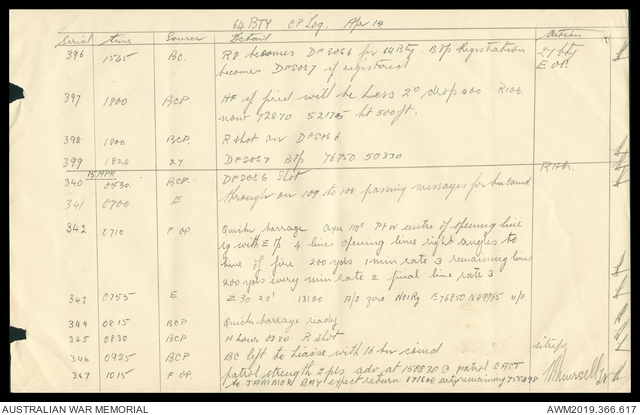 64 BTY CP Log. Apr 14
Serial time Source Detail Action
396 1545 BC. R8 becomes DFSOS6 for 64 Bty. Bty Registration 27 bty
becomes DFSOS7 if registered E OP.
397 1800 BCP. HF if fired will be Less 2° drop 400 R106
now 72870 52175 ht 500ft.
398 1800 BCP. R Shot on DFSOS6
399 1820 27 DFSOS7 76750 50330
15 APR
340 0530 BCP. DFSOS6 Shot
341 0700 E through on 109 to 100 passing messages for bn comd
342 0710 F OP. Quick barrage axis 110° Pt N centre of opening line
4 lines opening line right angles to
line of fire 200 yds 1 min rate 3 remaining lines
200 yds every min rate 2 final line rate 3
343 0755 E Z 30 20' 13100 A/S zero
344 0815 BCP Quick barrage ready
345 0830 BCP H hour 0830 R Shot
346 0925 BCP BC left to liaise with 16 bn comd sitrep
347 1015 F OP. patrol strength 2 pls adv at 150830 @ patrol EAST
to JAMMER BAY expect return 171600 remaining
AUSTRALIAN WAR MEMORIAL AWM2019.366.617